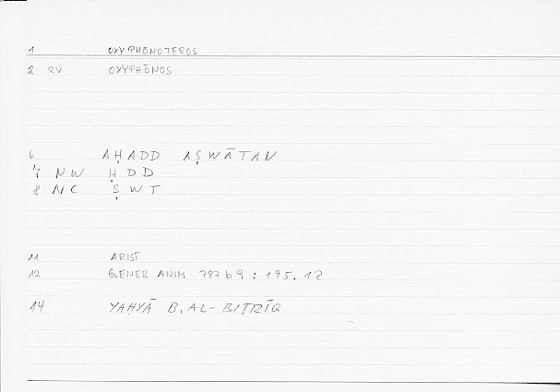 1 OXYPHŌNOTEROS
2 RV OXYPHŌNOS
6 AḤADD AṢWĀTAN
7 NW ḤDD
8 NC ṢWT
11 ARIST
12 GENER ANIM 787 b 9 : 195.12
14 YAḤYĀ B. AL-BIṬRĪQ